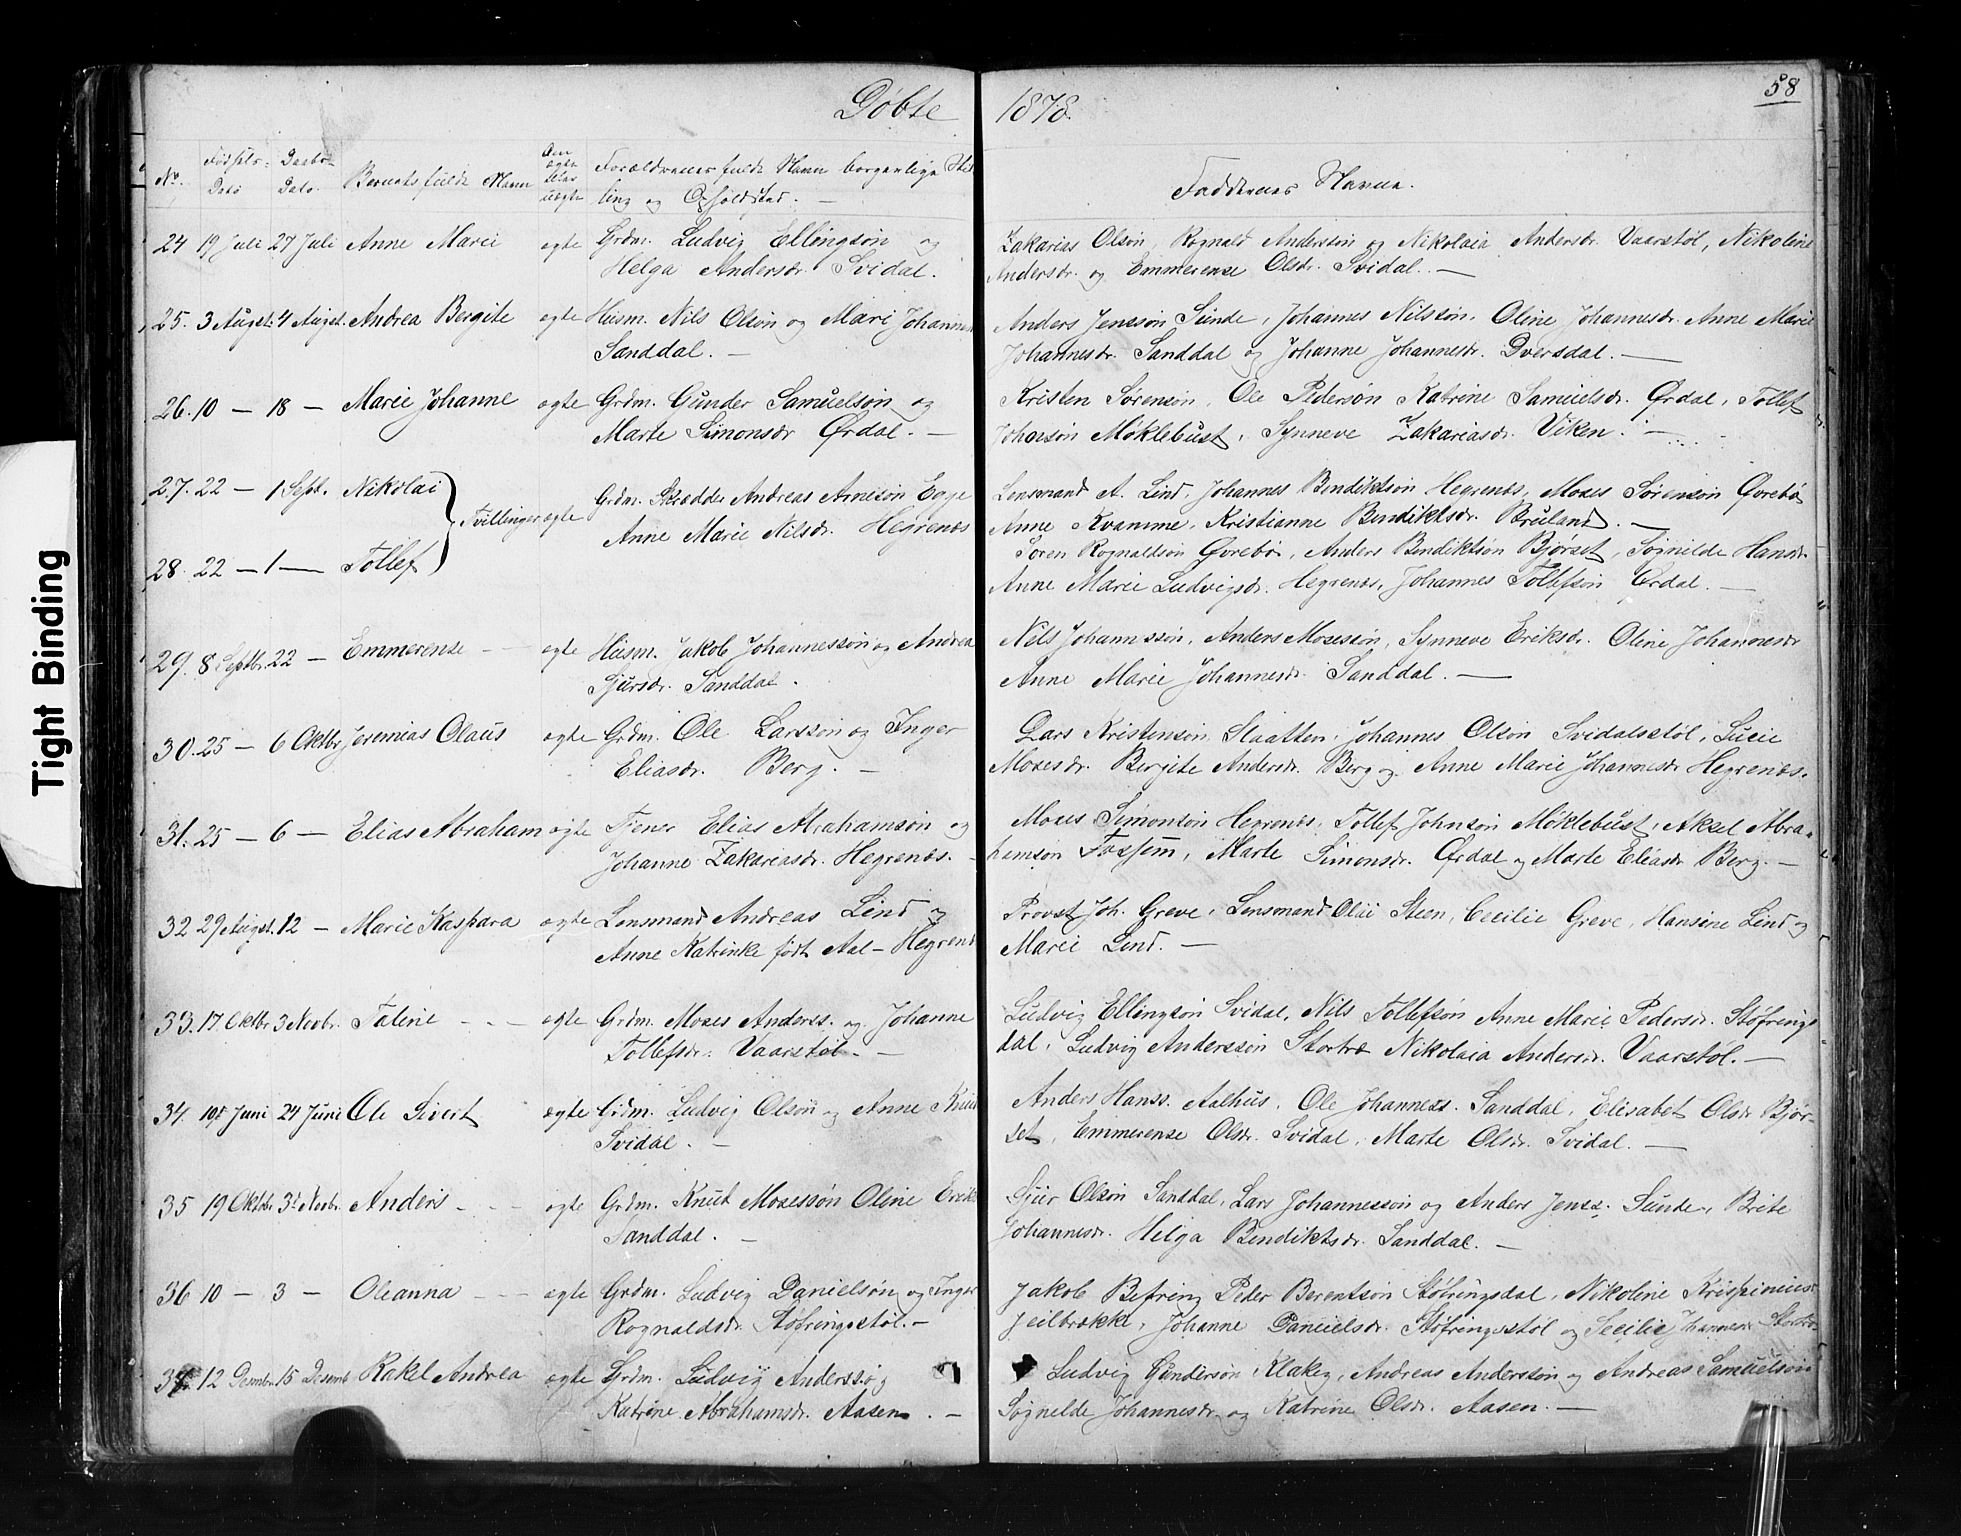 Døbte 1878.
58
No. Fødsels-Dato Daabs-Dato. Barnets fulde Navn Om ægte eller uægte Forældrenes fulde Navn borgerlige Stil-
ling og Opholdsted. —
Faddernes Navne.
24 19 Juli 27 Juli Anne Marie ægte Grdm. Ludvig Ellingsøn og
Helga Andersdr. Svidal.
Zakarias Olsøn, Rognald Anderssøn og Nikolaia Andersdr. Vaarstøl, Nikoline
Andersdr. og Emmerense Olsdr. Svidal. —
25. 3 August. 4 August. Andrea Bergite ægte Husm. Nils Olsøn og Mari Johannes
Sanddal. —
Anders Jenssøn Sunde, Johannes Nilssøn, Oline Johannesdr. Anne Marie
Johannesdr. Sanddal og Johanne Johannesdr. Dversdal. —
26. 10 — 18 — Marie Johanne ægte Grdm. Gunder Samuelsøn og
Marte Simonsdr Ørdal. —
Kristen Sørensøn, Ole Pedersøn Katrine Samuelsdr. Ørdal, Tollef
Johnsøn Møklebust, Synneve Zakariasdr. Viken. —
27. 22 — 1 Sept. Nikolai
Tvillinger ægte Grdm. Skrædder Andreas Arnesøn Egge
Anne Marie Nilsdr. Hegrenes
28. 22 — 1 — Tollef
Lensmand A. Lind, Johannes Bendiktsøn Hegrenes, Moses Sørensøn Øvrebø
Anne Kvamme, Kristianne Bendiktsdr. Bruland. —
Søren Rognaldsøn Øvrebø, Anders Bendiktsøn Bjørset, Søgnilde Hansdr.
Anne Marie Ludvigsdr. Hegrenes, Johannes Tollefsøn Ørdal. —
29. 8 Septbr. 22 — Emmerense — ægte Husm. Jakob Johannessøn og Andrea
Sjursdr. Sanddal.
Nils Johanssøn, Anders Mosessøn, Synneve Eriksdr. Oline Johannesdr
Anne Marie Johannesdr. Sanddal. —
30. 25 — 6 Oktbr Jeremias Olaus ægte Grdm. Ole Larssøn og Inger
Eliasdr. Berg. —
Lars Kristensøn Slaatten, Johannes Olsøn Svidalsstøl, Lucie
Mosesdr. Bergite Andersdr. Berg og Anne Marie Johannesdr Hegrenes.
31. 25 — 6 — Elias Abraham ægte Tjener Elias Abrahamsøn og
Johanne Zakariasdr. Hegrenes. —
Moses Simonsøn Hegrenes, Tollef Johnsøn Møklebust, Aksel Abra-
hamsøn Fossem, Marte Simonsdr. Ørdal og Marte Eliasdr Berg. —
32 29 August. 12 — Marie Kaspara ægte Lensmand Andreas Lind og
Anne Katrinke født Aal — Hegrenes
Provst Joh. Greve, Lensmand Olai Steen, Cecilie Greve, Hansine Lind og
Marie Lind. —
33. 17 Oktbr 3 Novbr. Taline — — — ægte Grdm. Moses Anderss. og Johanne
Tollefsdr. Vaarstøl. —
Ludvig Ellingsøn Svidal, Nils Tollefsøn Anne Marie Pedersdr. Støfrings-
dal, Ludvig Anderssøn Stortræ Nikolaia Andersdr. Vaarstøl. —
34. 10 Juni 24 Juni Ole Sivert ægte Grdm. Ludvig Olsøn og Anne Knuds
Svidal. —
Anders Hanss. Aalhus, Ole Johanness. Sanddal, Elisabet Olsdr Bjør-
set, Emmerense Olsdr. Svidal, Marte Olsdr. Svidal. —
35 19 Oktbr 3d Novbr. Anders — — — ægte Grdm. Knut Mosessøn Oline Eriks
Sanddal. —
Sjur Olsøn Sanddal, Lars Johannessøn og Anders Jenss. Sunde, Brite
Johannesdr. Helga Bendiktsdr. Sanddal. —
36 10 — 3 — Oleanna — — — ægte Grdm. Ludvig Danielsøn og Inger
Rognaldsdr. Støfringsstøl. —
Jakob Befring Peder Berentsøn Støfringsdal, Nikoline Krispinius
Jeilbrække, Johanne Danielsdr. Støfringsstøl og Secilie Johannesdr
37. 12 Desembr. 15 Desemb Rakel Andrea ægte Grdm. Ludvig Anderssø og
Katrine Abrahamsdr. Aasen. —
Ludvig Gundersøn Klakeg, Andreas Anderssøn og Andreas Samuelsøn
Søgnilde Johannesdr og Katrine Olsdr. Aasen. —
Tight Binding